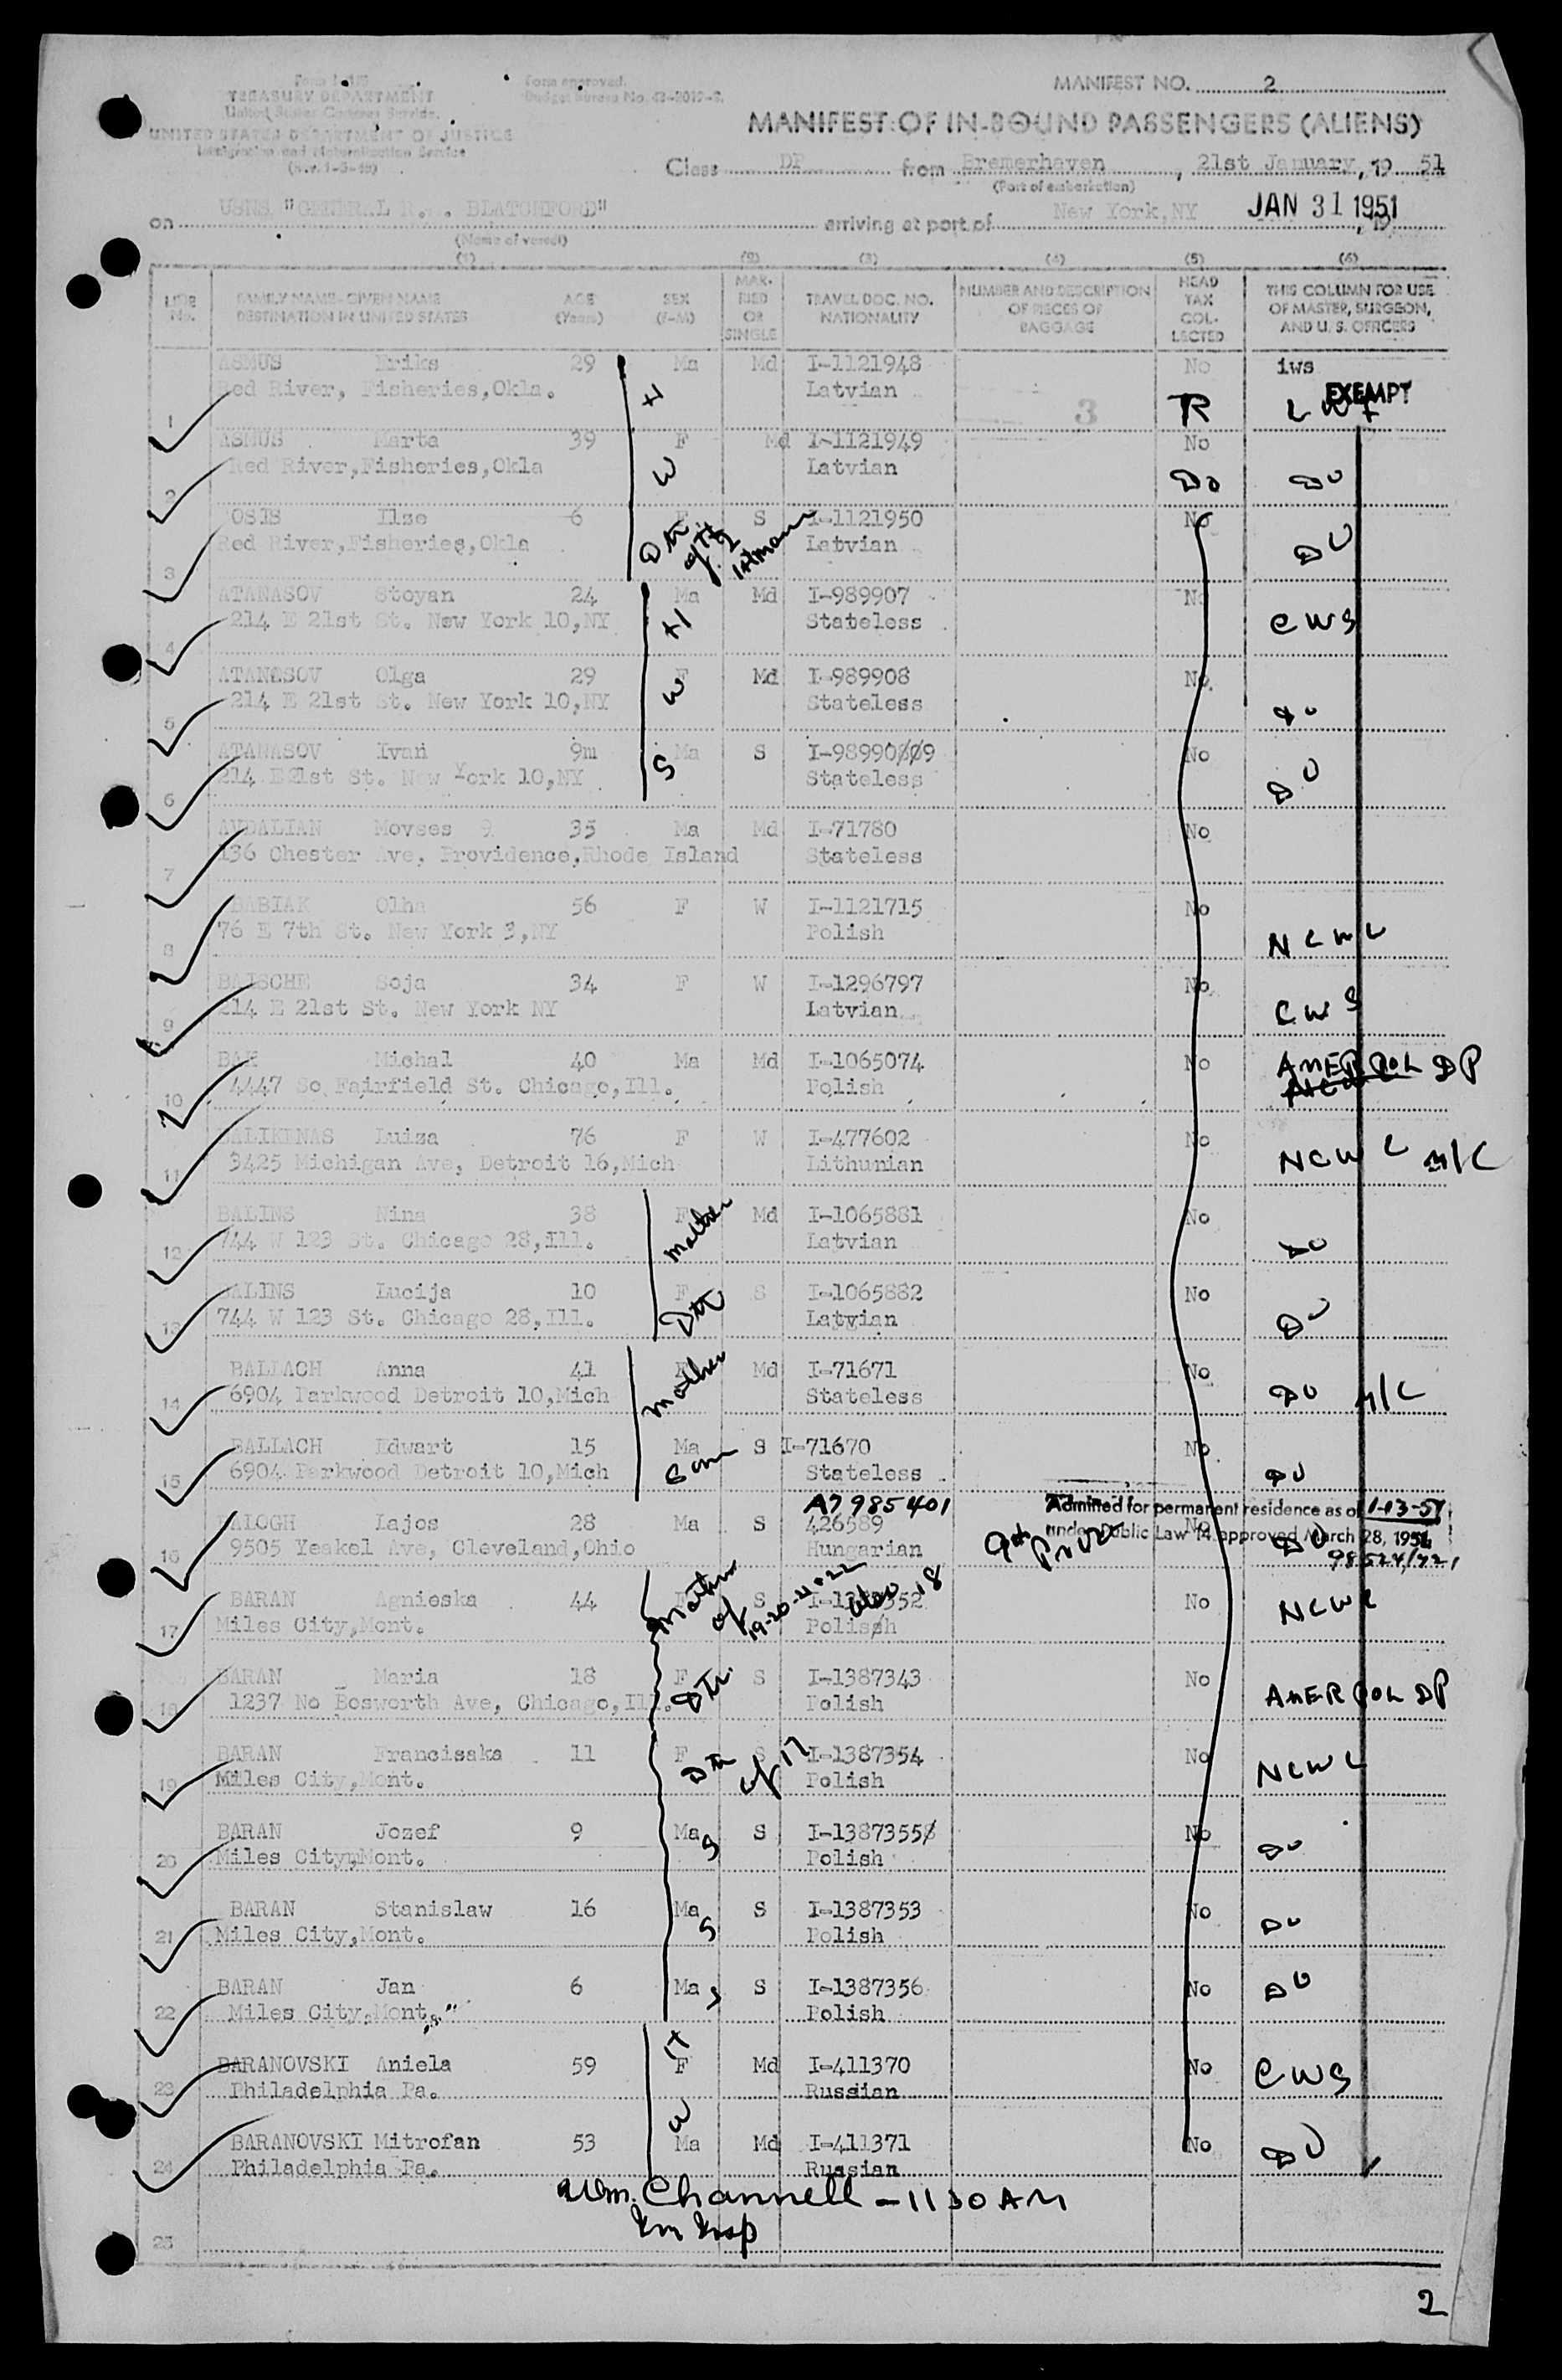 Form I-415
TREASURY DEPARTMENT
United States Customs Service.
UNITED STATES DEPARTMENT OF JUSTICE
Immigration and Naturalization Service
Form approved.
Budget Bureau No.
MANIFEST NO. 2
MANIFEST OF IN-BOUND PASSENGERS (ALIENS)
Class DP from Bremerhaven, 21st January, 19 51
(Port of embarkation)
on USNS "GENERAL R.M. BLATCHFORD" arriving at port of New York, NY JAN 31 1951, 19
(Name of vessel)
(1) (2) (3) (4) (5) (6)
LINE NO.
FAMILY NAME-GIVEN NAME DESTINATION IN UNITED STATES
AGE (Years)
SEX (F-M)
MARRIED OR SINGLE
TRAVEL DOC. NO. NATIONALITY
NUMBER AND DESCRIPTION OF PIECES OF BAGGAGE
HEAD TAX COLLECTED
THIS COLUMN FOR USE OF MASTER, SURGEON, AND U. S. OFFICERS
ASMUS Eriks 29 Ma Md I-1121948 No iws
Red River, Fisheries,Okla. H Latvian EXEMPT
1 3 TR LWF
ASMUS Marta 39 F Md I-1121949 No
Red River,Fisheries,Okla W Latvian
2 Do DO
OSIS Ilze 6 F S I-1121950 No
Red River,Fisheries,Okla Dtr of Latvian
3 DO
ATANASOV Stoyan 24 Ma Md I-989907 No
214 E 21st St. New York 10,NY H Stateless CWS
4
ATANASOV Olga 29 F Md I-989908 No.
214 E 21st St. New York 10,NY W Stateless
5 DO
ATANASOV Ivan 9m Ma S I-98990809 No
214 E21st St. New York 10,NY S Stateless DO
6
AVDALIAN Movses 35 Ma Md I-71780 No
136 Chester Ave, Providence,Rhode Island Stateless
7
BABIAK Olha 56 F W I-1121715 No
76 E 7th St. New York 3,NY Polish NCWC
8
BAISCHE Soja 34 F W I-1296797 No
214 E 21st St. New York NY Latvian CWS
9
BAK Michal 40 Ma Md I-1065074 No AMERPOL DP
4447 So Fairfield St. Chicago,Ill. Polish
10
BALIKENAS Luiza 76 F W I-477602 No
3425 Michigan Ave, Detroit 16,Mich Lithunian NCWC M/C
11
BALINS Nina 38 F Md I-1065881 No
744 W 123 St. Chicago 28,Ill. mother Latvian DO
12
BALINS Lucija 10 F S I-1065882 No
744 W 123 St. Chicago 28,Ill. Dtr Latvian DO
13
BALLACH Anna 41 F Md I-71671 No
6904 Parkwood Detroit 10,Mich mother Stateless DO M/C
14
BALLACH Edwart 15 Ma S I-71670 No
6904 Parkwood Detroit 10,Mich Son Stateless DO
15
A7985401
Admitted for permanent residence as of 1-13-51
BALOGH Lajos 28 Ma S 426589 No
under Public Law 14 approved March 28, 1951
9505 Yeakel Ave, Cleveland,Ohio Hungarian 9th Prov DO
16
BARAN Agnieska 44 F S No
Miles City,Mont. mother of 19-20-21+22 also 18 Polish NCWC
17
BARAN Maria 18 F S I-1387343 No
1237 No Bosworth Ave, Chicago,Ill. Dtr. Polish AMERPOL DP
18
BARAN Francisaka 11 F S I-1387354 No
Miles City,Mont. Dtr of 17 Polish NCWC
19
BARAN Jozef 9 Ma S S I-13873558 No
Miles City,Mont. Polish DO
20
BARAN Stanislaw 16 Ma S S I-1387353 No
Miles City,Mont. Polish DO
21
BARAN Jan 6 Ma S S I-1387356 No
Miles City,Mont. Polish DO
22
BARANOVSKI Aniela 59 H F Md I-411370 No
Philadelphia Pa. Russian CWS
23
BARANOVSKI Mitrofan 53 W Ma Md I-411371 No
Philadelphia Pa. Russian DO
24
Wm. Channell - 1130 AM
Imm Insp
25
2